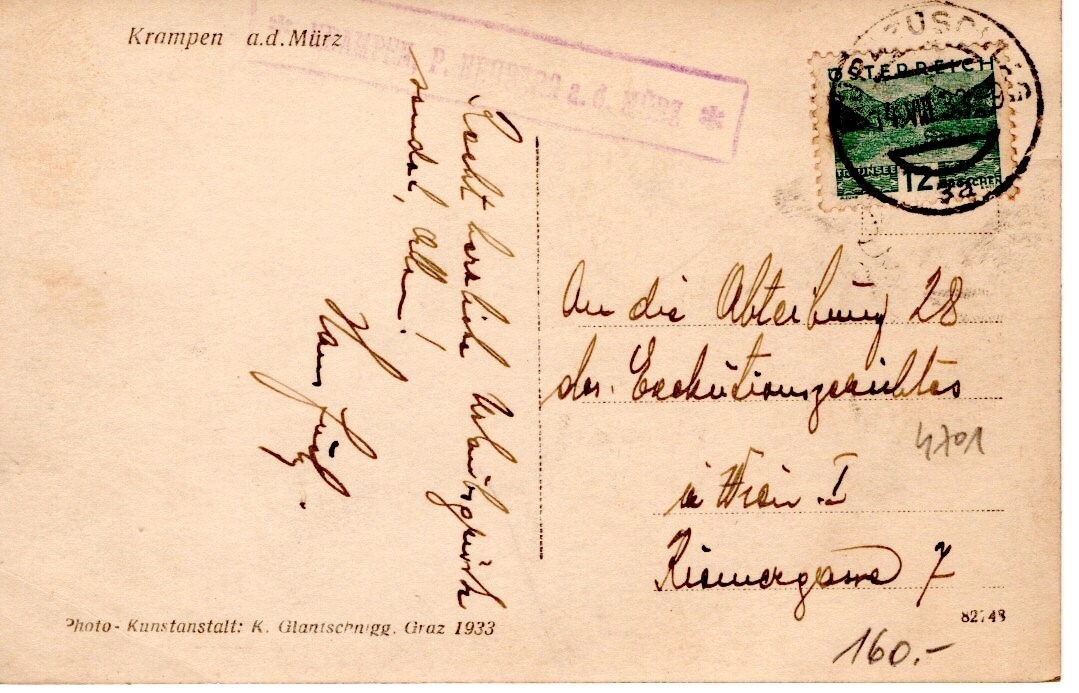 Krampen a.d. Mürz
* KRAMPEN, P. NEUBERG a. d. MÜRZ *
MÜRZZUSCHLAG
ÖSTERREICH
TRAUNSEE
12 GROSCHEN
3a
Recht herzliche Urlaubsgrüße
sendet allen,
Hans
An die Abteilung 28
des Exekutionsgerichtes
in Wien I
Riemergasse 7
4701
Photo-Kunstanstalt: K. Glantschnigg, Graz 1933
82748
160.-